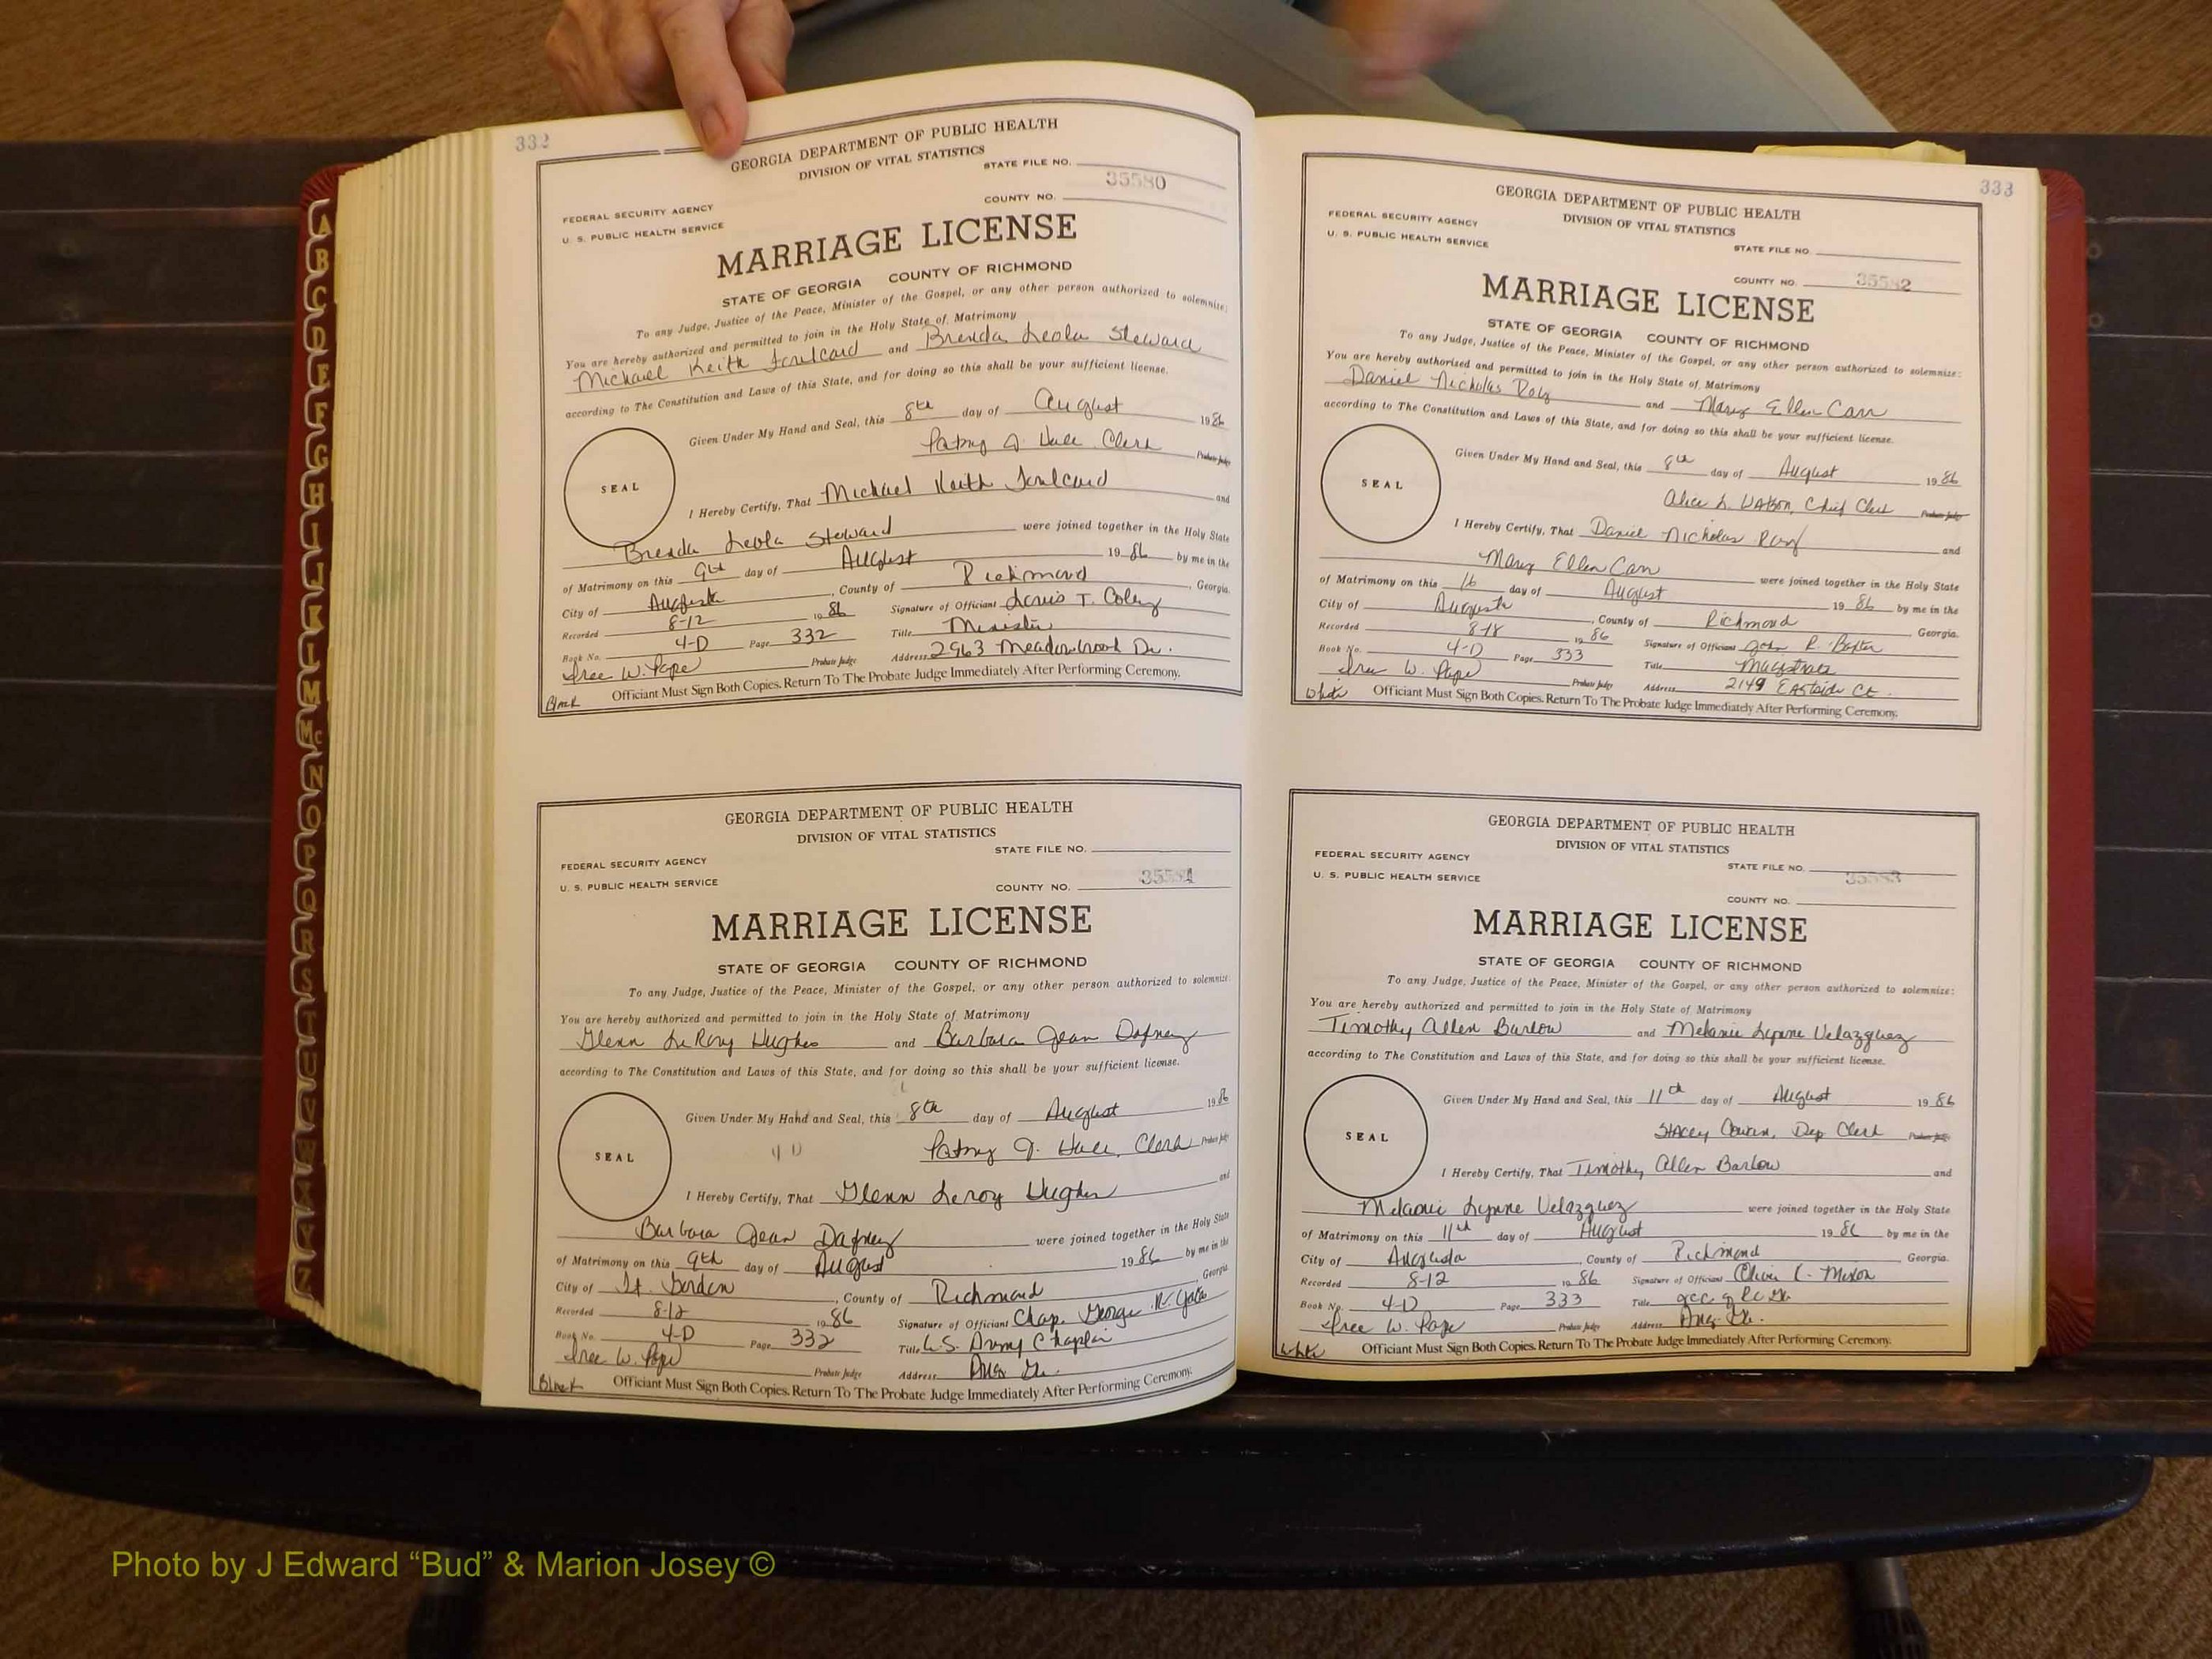 332
GEORGIA DEPARTMENT OF PUBLIC HEALTH
DIVISION OF VITAL STATISTICS
STATE FILE NO.
35580
FEDERAL SECURITY AGENCY
COUNTY NO.
U. S. PUBLIC HEALTH SERVICE
MARRIAGE LICENSE
STATE OF GEORGIA COUNTY OF RICHMOND
To any Judge, Justice of the Peace, Minister of the Gospel, or any other person authorized to solemnize:
You are hereby authorized and permitted to join in the Holy State of Matrimony
Michael Keith and Brenda Leola Steward
according to The Constitution and Laws of this State, and for doing so this shall be your sufficient license.
Given Under My Hand and Seal, this 8th day of August 1986
J. Clerk Probate Judge
SEAL
I Hereby Certify, That Michael Keith and
Brenda Leola Steward were joined together in the Holy State
of Matrimony on this 9th day of August 1986 by me in the
City of Augusta, County of Richmond, Georgia.
Recorded 8-12 1986 Signature of Official Louis T.
Book No. 4-D Page 332 Title Minister
W. Pope Probate Judge Address 2963 Meadowbrook Dr.
Black Officiant Must Sign Both Copies. Return To The Probate Judge Immediately After Performing Ceremony.
GEORGIA DEPARTMENT OF PUBLIC HEALTH
DIVISION OF VITAL STATISTICS
STATE FILE NO.
FEDERAL SECURITY AGENCY
U. S. PUBLIC HEALTH SERVICE
COUNTY NO. 35581
MARRIAGE LICENSE
STATE OF GEORGIA COUNTY OF RICHMOND
To any Judge, Justice of the Peace, Minister of the Gospel, or any other person authorized to solemnize
You are hereby authorized and permitted to join in the Holy State of Matrimony
Glenn LeRoy Hughes and Barbara Jean Dafney
according to The Constitution and Laws of this State, and for doing so this shall be your sufficient license.
Given Under My Hand and Seal, this 8th day of August 1986
J. Clerk Probate Judge
SEAL
I Hereby Certify, That Glenn Leroy Hughes and
Barbara Jean Dafney were joined together in the Holy State
of Matrimony on this 9th day of August 1986 by me in the
City of Ft. Gordon, County of Richmond, Georgia
Recorded 8-12 1986 Signature of Official Chap. George R.
Book No. 4-D Page 332 Title U.S. Army Chaplain
W. Pope Probate Judge Address Aug Ga.
Black Officiant Must Sign Both Copies. Return To The Probate Judge Immediately After Performing Ceremony.
333
GEORGIA DEPARTMENT OF PUBLIC HEALTH
DIVISION OF VITAL STATISTICS
FEDERAL SECURITY AGENCY
U. S. PUBLIC HEALTH SERVICE
STATE FILE NO.
COUNTY NO. 35582
MARRIAGE LICENSE
STATE OF GEORGIA COUNTY OF RICHMOND
To any Judge, Justice of the Peace, Minister of the Gospel, or any other person authorized to solemnize:
You are hereby authorized and permitted to join in the Holy State of Matrimony
Daniel Nicholas and Mary Ellen Carr
according to The Constitution and Laws of this State, and for doing so this shall be your sufficient license.
Given Under My Hand and Seal, this 8th day of August 1986
Alice L. Watson, Chief Clerk Probate Judge
SEAL
I Hereby Certify, That Daniel Nicholas and
Mary Ellen Carr were joined together in the Holy State
of Matrimony on this 16 day of August 1986 by me in the
City of Augusta, County of Richmond Georgia.
Recorded 8-18 1986 Signature of Official John R. Baxter
Book No. 4-D Page 333 Title Magistrate
W. Pope Probate Judge Address 2149 Eastside Ct.
White Officiant Must Sign Both Copies. Return To The Probate Judge Immediately After Performing Ceremony.
GEORGIA DEPARTMENT OF PUBLIC HEALTH
DIVISION OF VITAL STATISTICS
FEDERAL SECURITY AGENCY
STATE FILE NO.
U. S. PUBLIC HEALTH SERVICE
35583
COUNTY NO.
MARRIAGE LICENSE
STATE OF GEORGIA COUNTY OF RICHMOND
To any Judge, Justice of the Peace, Minister of the Gospel, or any other person authorized to solemnize:
You are hereby authorized and permitted to join in the Holy State of Matrimony
Timothy Allen Barlow and Melanie Lynne Velazquez
according to The Constitution and Laws of this State, and for doing so this shall be your sufficient license.
Given Under My Hand and Seal, this 11th day of August 1986
Stacey Cowan, Dep Clerk Probate Judge
SEAL
I Hereby Certify, That Timothy Allen Barlow and
Melanie Lynne Velazquez were joined together in the Holy State
of Matrimony on this 11th day of August 1986 by me in the
City of Augusta, County of Richmond Georgia.
Recorded 8-12 1986 Signature of Official Oliver K. Mixon
Book No. 4-D Page 333 Title
W. Pope Probate Judge Address Aug. Ga.
White Officiant Must Sign Both Copies. Return To The Probate Judge Immediately After Performing Ceremony.
Photo by J Edward “Bud” & Marion Josey ©